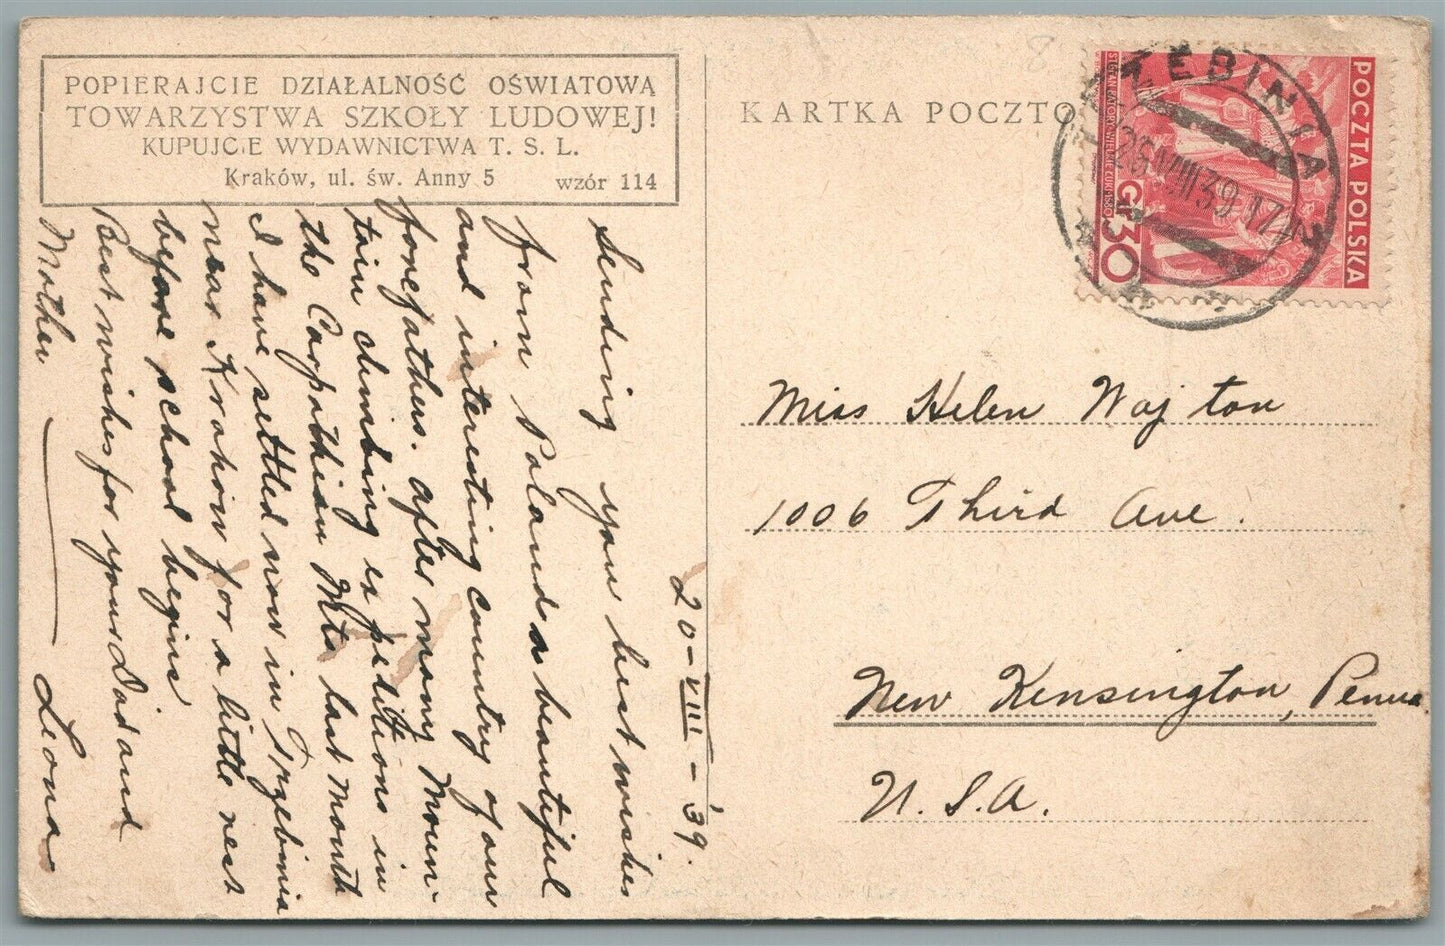 POPIERAJCIE DZIAŁALNOŚĆ OŚWIATOWĄ
TOWARZYSTWA SZKOŁY LUDOWEJ!
KUPUJCIE WYDAWNICTWA T. S. L.
Kraków, ul. św. Anny 5 wzór 114
20-VIII-'39.
Sending you best wishes
from Poland a beautiful
and interesting country of our
forefathers. after many moun-
tain climbing expeditions in
the Carpathian Mts last month
I have settled now in Trzebinia
near Krakow for a little rest
before school begins
Best wishes for your Dad and
Mother — Leona
KARTKA POCZTO
TRZEBINIA
26 VIII 39 17
POCZTA POLSKA
STEFAN BATORY·WIELICZKI·1580
GR 30
Miss Helen Wojton
1006 Third Ave.
New Kensington, Penna
U.S.A.